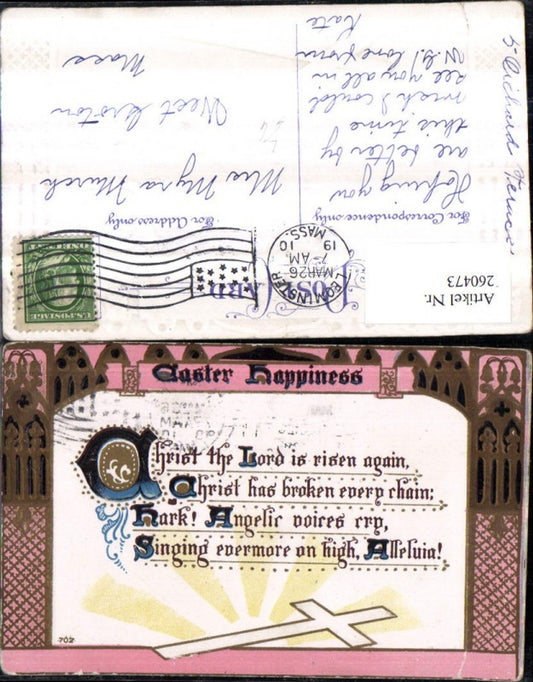 POST CARD
For Correspondence only
For Address only
Hoping you
are better by
this time
wish I could
see you all in
N.S. love from
Kate
Mrs Myra Munch
West Groton
Mass
LEOMINSTER
MAR 26
7-AM
1910
MASS.
U.S. POSTAGE
Artikel Nr.
260473
Easter Happiness
Christ the Lord is risen again,
Christ has broken every chain;
Hark! Angelic voices cry,
Singing evermore on high, Alleluia!
702